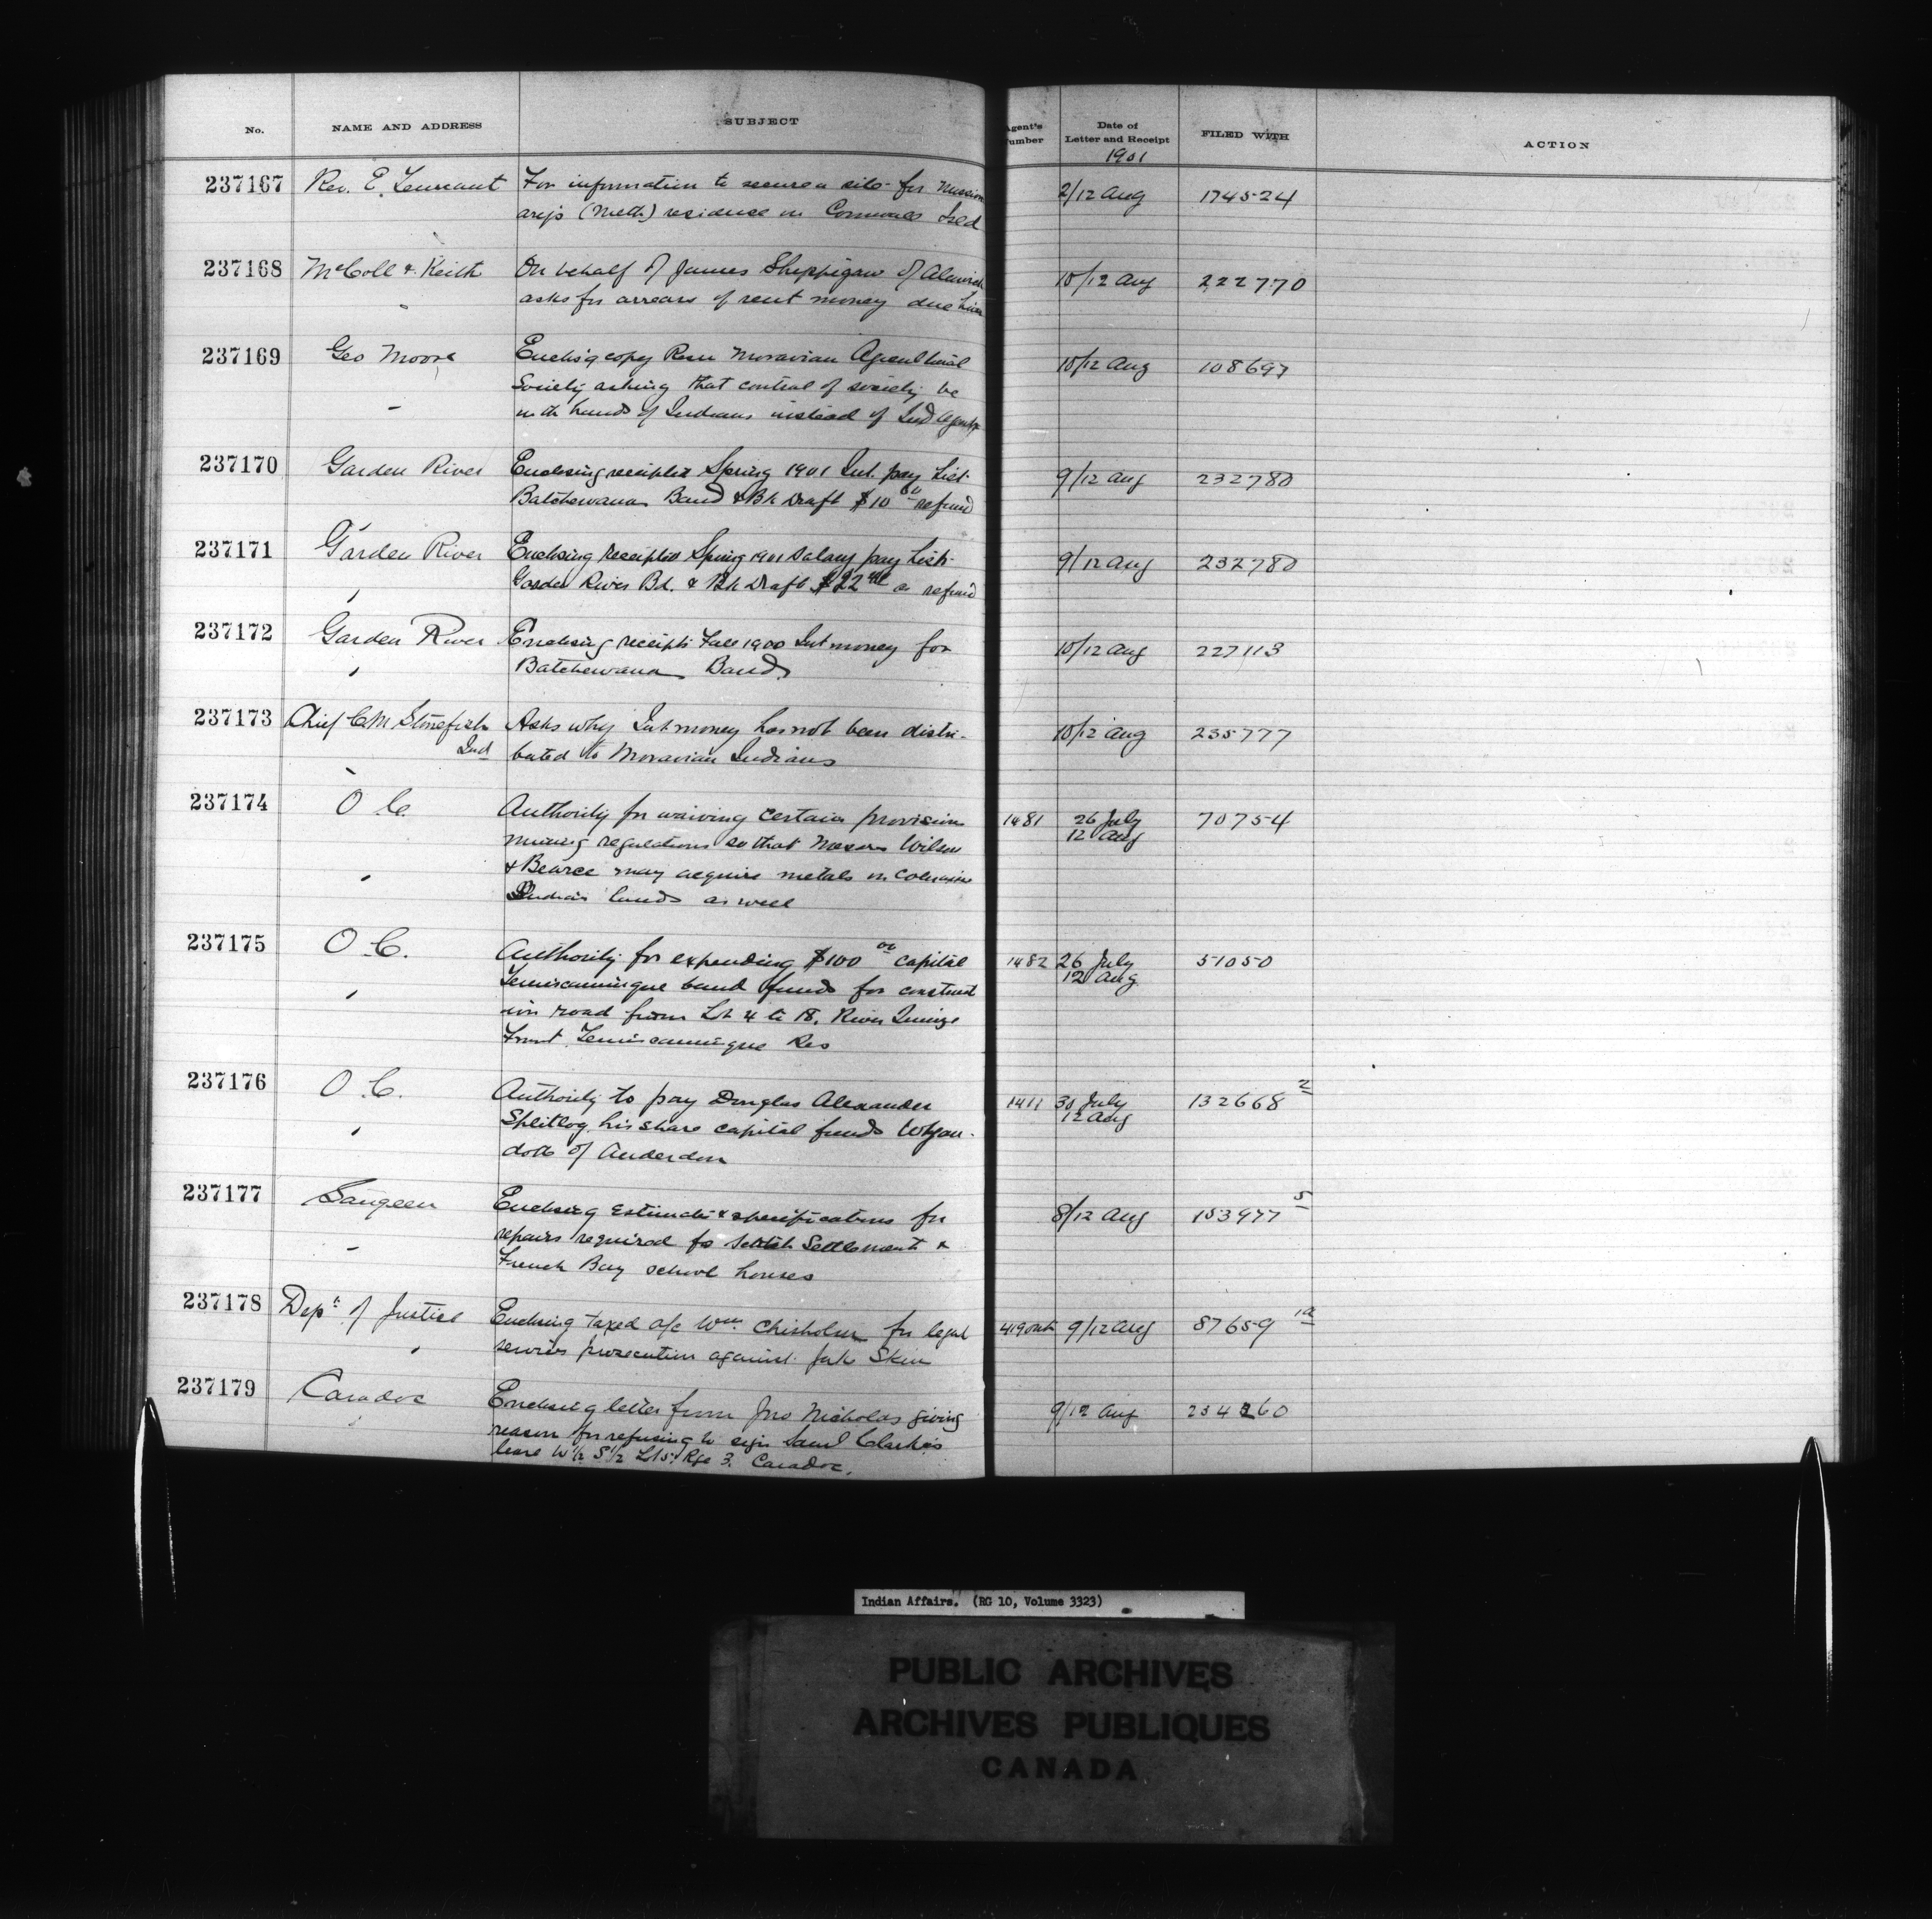 No. NAME AND ADDRESS SUBJECT Agent's Number Date of Letter and Receipt FILED WITH ACTION
1901
237167 Rev. E. Tennant For information to secure a site for mission 2/12 Aug 174524
ary's (Meth) residence on Cornwall Isld
237168 McColl & Keith On behalf of James Sheppigaw of Alnwick 10/12 Aug 222770
asks for arrears of rent money due him
237169 Geo Moore Enclos'g copy Resn Moravian Agricultural 10/12 Aug 108697
Society asking that control of society be
in the hands of Indians instead of Ind Agent
237170 Garden River Enclosing receipted Spring 1901 Int. pay list 9/12 Aug 232780
Batchewana Band & Bk Draft $10 00 refund
237171 Garden River Enclosing receipted Spring 1901 Salary pay list 9/12 Aug 232780
Garden River Bd. & Bk Draft $22 as refund
237172 Garden River Enclosing receipts Fall 1900 Int money for 10/12 Aug 227113
Batchewana Band
237173 Chief C M Stonefish Asks why Int money has not been distri- 10/12 Aug 235777
Ind buted to Moravian Indians
237174 O C. Authority for waiving certain provision 1481 26 July 70754
mining regulations so that Messrs Wilson 12 Aug
& Bearce may acquire metals on Coleraine
Indian lands as well
237175 O. C. Authority for expending $100 00 capital 1482 26 July 51050
Temiscamingue band funds for construct 12 Aug
ion road from Lot 4 to 18, River Quinze
Front Temiscamingue Res
237176 O C. Authority to pay Douglas Alexander 1411 30 July 132668 2
Splitlog his share capital funds Wyan- 12 Aug
dotts of Anderdon
237177 Saugeen Enclosing estimate & specifications for 8/12 Aug 153977 5
repairs required to Scotch Settlement &
French Bay school houses
237178 Dept. of Justice Enclosing taxed a/c Wm. Chisholm for legal 9/12 Aug 87659 1a
services prosecution against Jak Skin
237179 Caradoc Enclosing letter from Jno Nicholas giving 9/12 Aug 234260
reason for refusing to sign Saml Clarke's
lease W 1/2 S 1/2 Lot 5 Rge 3. Caradoc.
Indian Affairs. (RG 10, Volume 3323)
PUBLIC ARCHIVES
ARCHIVES PUBLIQUES
CANADA